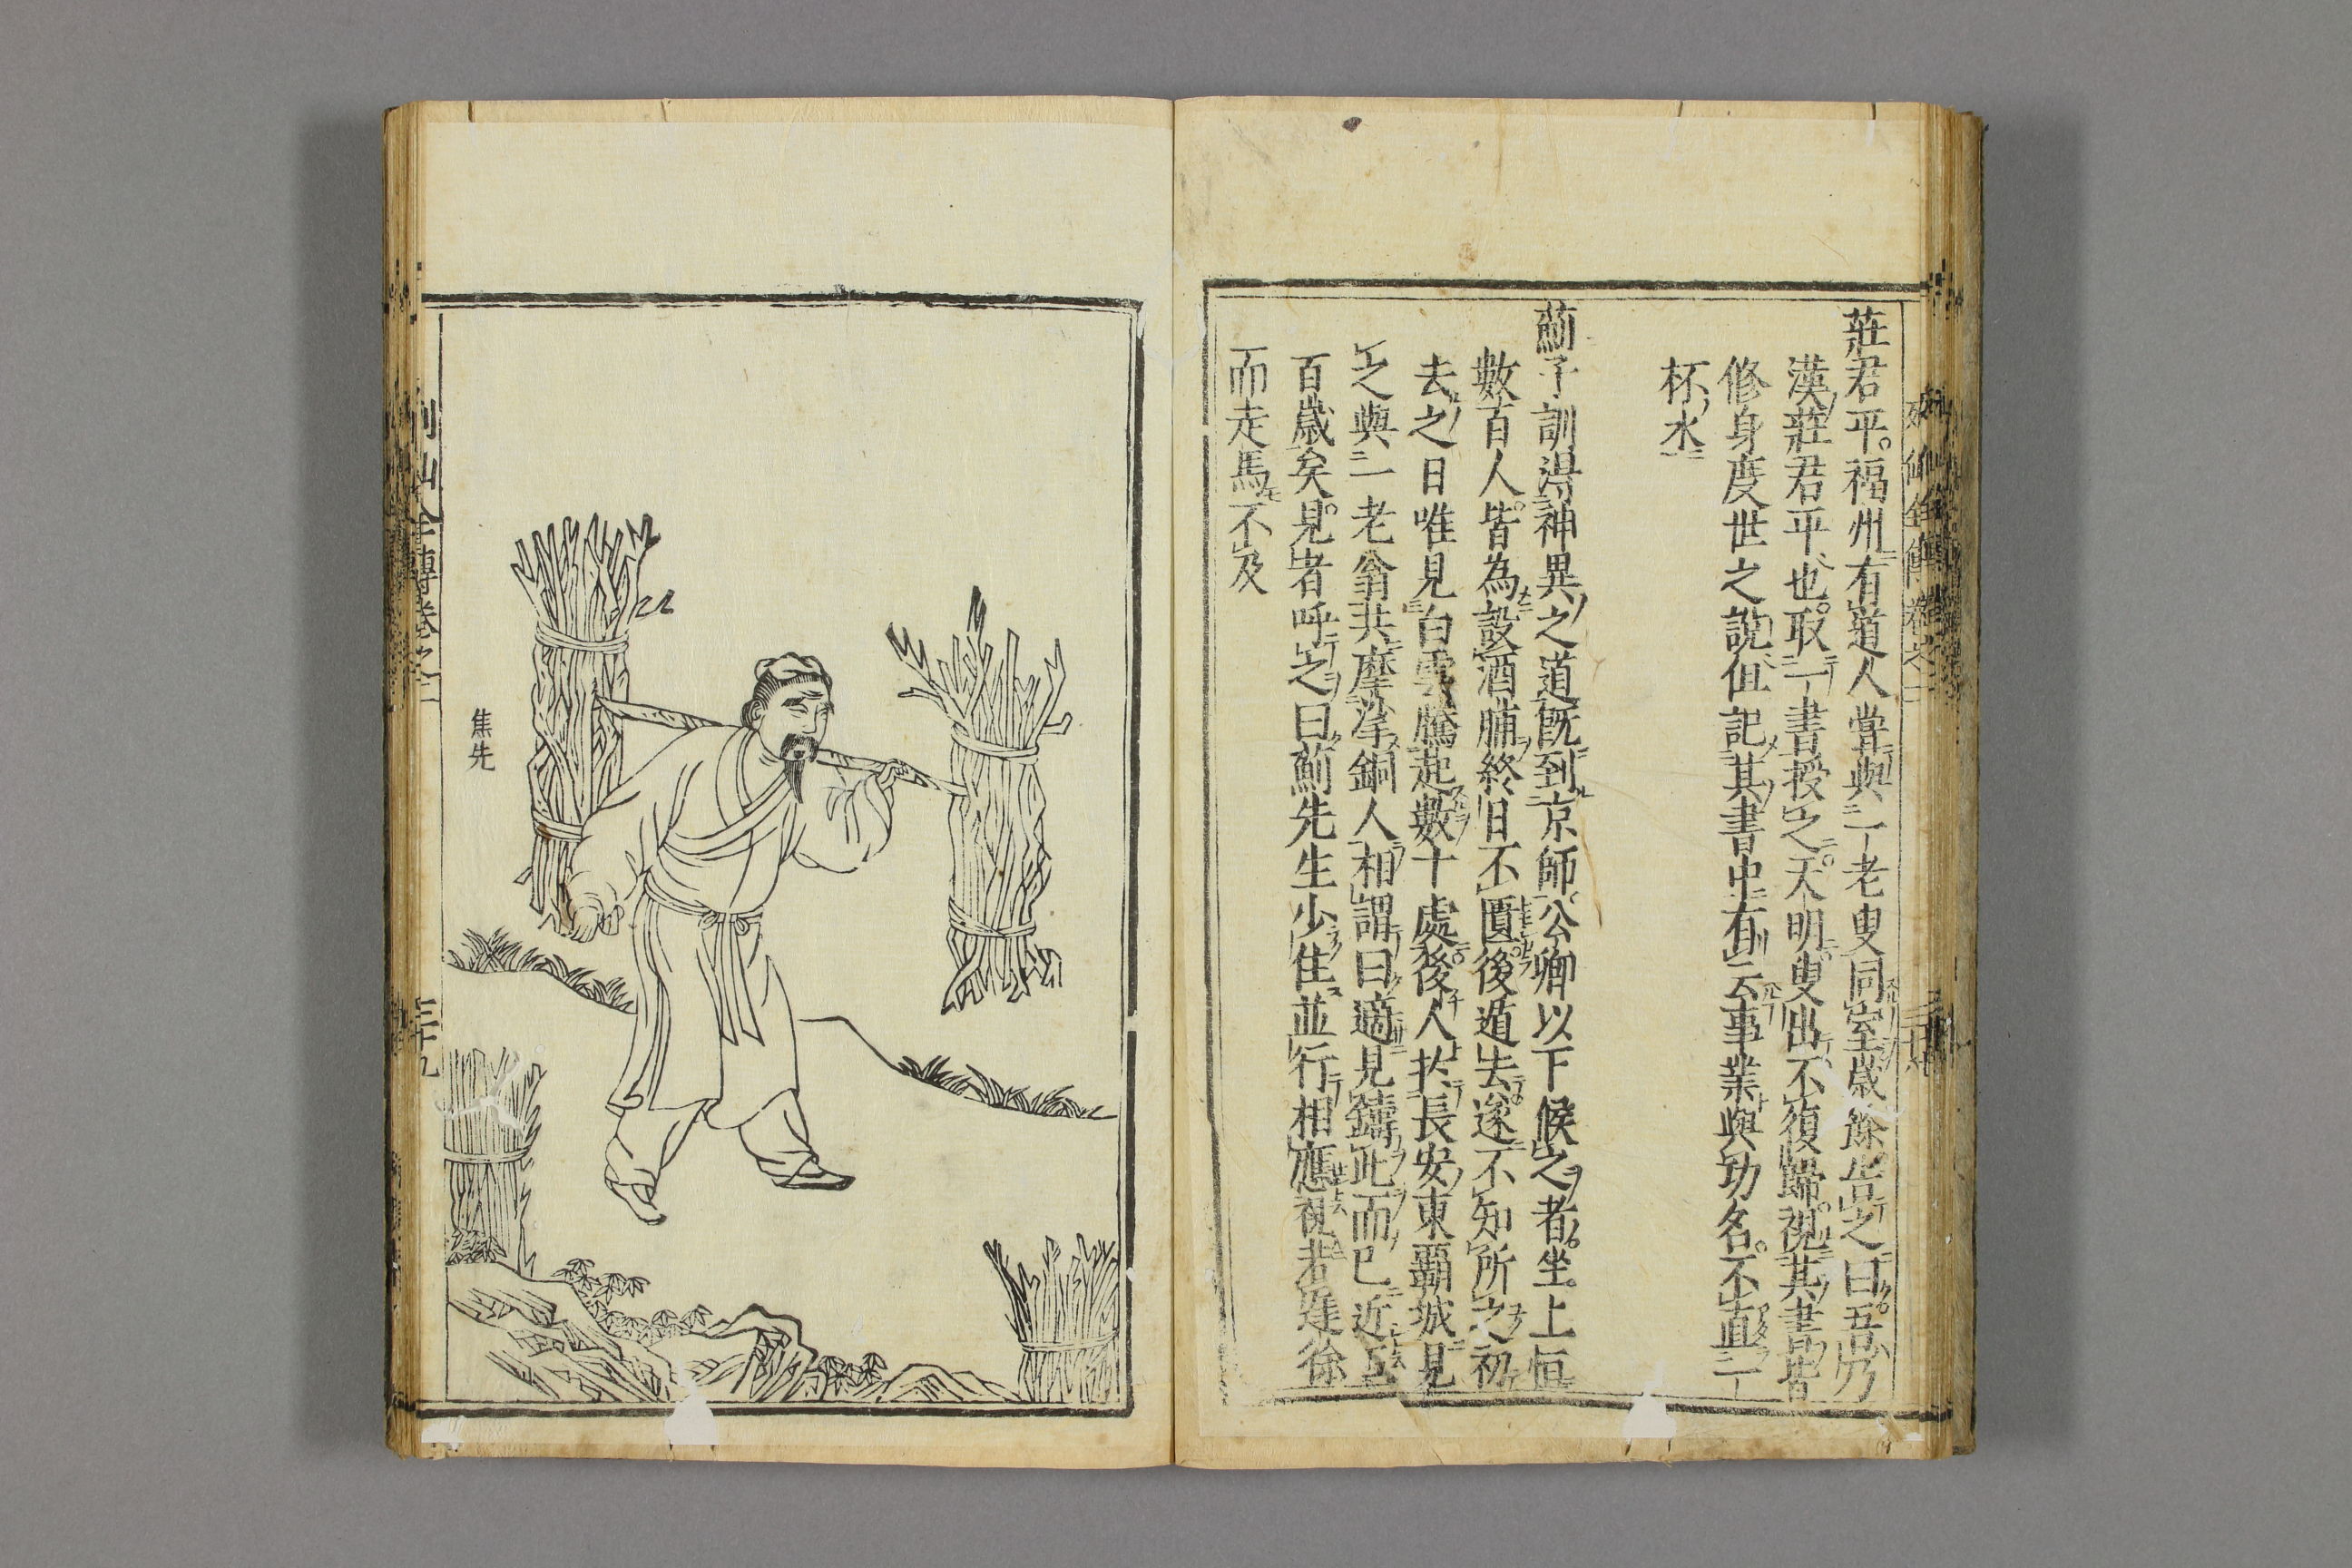 莊君平。福州有道人嘗與一老叟同室歲餘。告之曰。吾乃
漢莊君平也。取一書授之。天明叟出不復歸。視其書皆
修身度世之說。但記其書中有云事業與功名。不直一
杯水
薊子訓得神異之道既到京師。公卿以下候之者。坐上恒
數百人。皆為設酒脯終日不匱。後遁去。遂不知所之初
去之日唯見白雲騰起數十處。後人於長安東霸城見
之與一老翁共摩挲銅人相謂曰適見鑄此而已近五
百歲矣。見者呼之曰薊先生少住並行相應視若遲徐
而走馬不及
焦先
列仙全傳卷之二
三十九